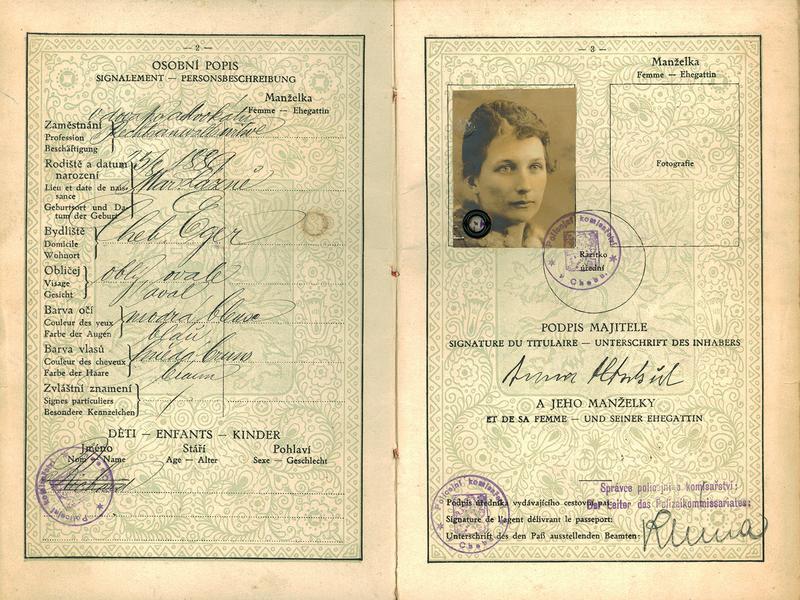 — 2 —
OSOBNÍ POPIS
SIGNALEMENT — PERSONSBESCHREIBUNG
Manželka
Femme — Ehegattin
Zaměstnání
Profession
Beschäftigung
Rodiště a datum
narození
Lieu et date de nais-
sance
Geburtsort und Da-
tum der Geburt
Mar. Lázně
Bydliště
Domicile
Wohnort
Cheb Eger
Obličej
Visage
Gesicht
oblý ovale
oval
Barva očí
Couleur des yeux
Farbe der Augen
modrá bleue
blau
Barva vlasů
Couleur des cheveux
Farbe der Haare
hnědá bruns
braun
Zvláštní znamení
Signes particuliers
Besondere Kennzeichen
DĚTI — ENFANTS — KINDER
Jméno Stáří Pohlaví
Nom — Name Age — Alter Sexe — Geschlecht
— 3 —
Manželka
Femme — Ehegattin
Fotografie
Policejní komisařství
v Chebu
Razítko
úřední
PODPIS MAJITELE
SIGNATURE DU TITULAIRE — UNTERSCHRIFT DES INHABERS
Anna
A JEHO MANŽELKY
ET DE SA FEMME — UND SEINER EHEGATTIN
Správce policejního komisařství:
Der Leiter des Polizeikommissariates:
Podpis úředníka vydávajícího cestovní pas:
Signature de l'agent délivrant le passeport:
Unterschrift des den Paß ausstellenden Beamten: